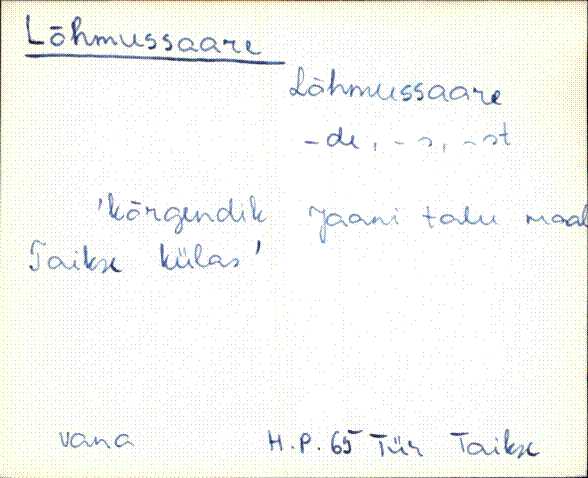 Lõhmussaare
Lõhmussaare
-de, -s, -st
'kõrgendik Jaani talu maal
Taikse külas'
vana H.P. 65 Tür Taikse